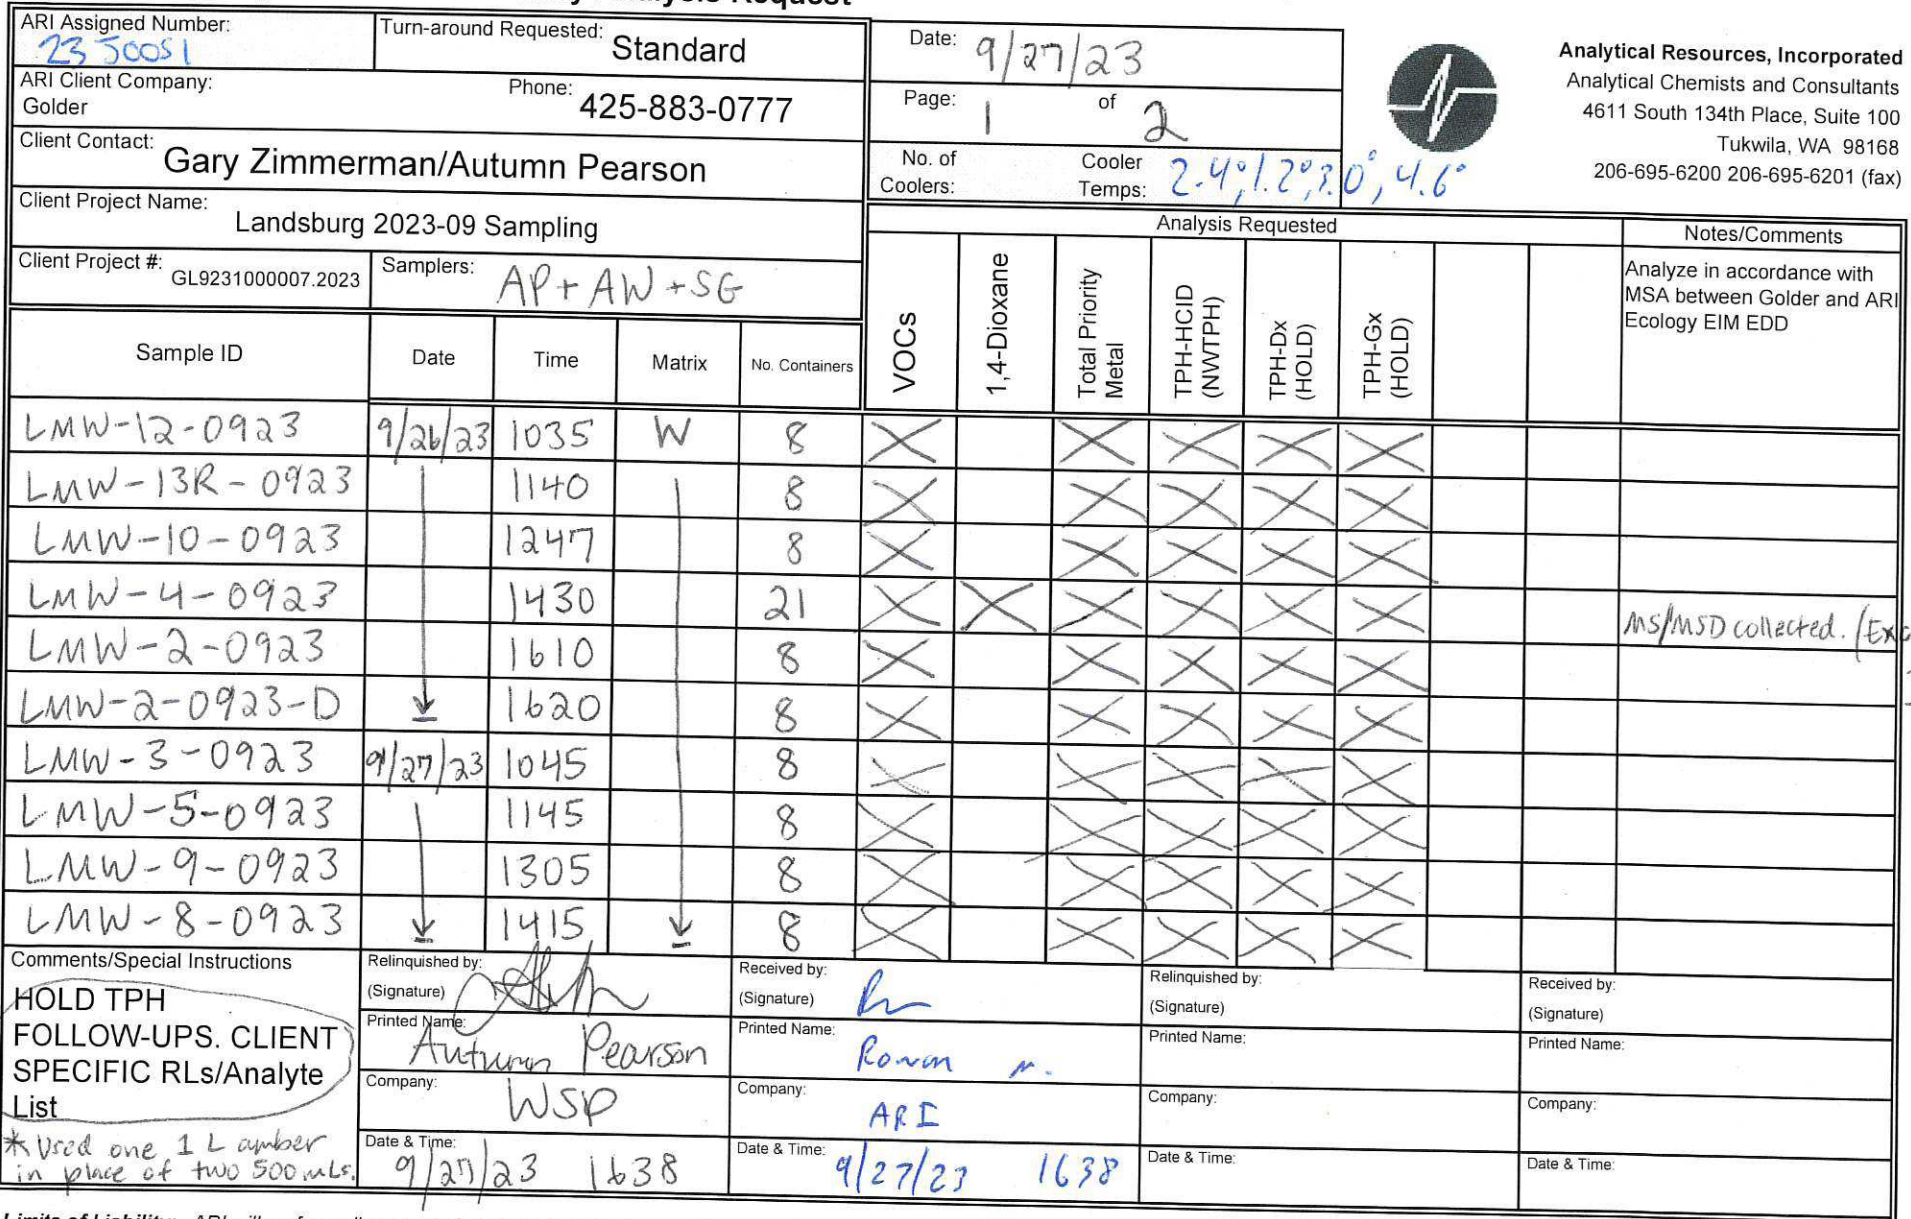 Analysis Request
ARI Assigned Number: 23J0051
Turn-around Requested: Standard
ARI Client Company: Golder
Phone: 425-883-0777
Client Contact: Gary Zimmerman/Autumn Pearson
Client Project Name: Landsburg 2023-09 Sampling
Client Project #: GL9231000007.2023
Samplers: AP + AW + SG
Date: 9/27/23
Page: 1 of 2
No. of Coolers:
Cooler Temps: 2.4°, 1.2°, 3.0°, 4.6°
Analytical Resources, Incorporated
Analytical Chemists and Consultants
4611 South 134th Place, Suite 100
Tukwila, WA 98168
206-695-6200 206-695-6201 (fax)
Analysis Requested
Notes/Comments
Sample ID Date Time Matrix No. Containers VOCs 1,4-Dioxane Total Priority Metal TPH-HCID (NWTPH) TPH-Dx (HOLD) TPH-Gx (HOLD)
Analyze in accordance with
MSA between Golder and ARI
Ecology EIM EDD
LMW-12-0923 9/26/23 1035 W 8 X X X X X
LMW-13R-0923 1140 8 X X X X X
LMW-10-0923 1247 8 X X X X X
LMW-4-0923 1430 21 X X X X X X MS/MSD collected.
LMW-2-0923 1610 8 X X X X X
LMW-2-0923-D 1620 8 X X X X X
LMW-3-0923 9/27/23 1045 8 X X X X X
LMW-5-0923 1145 8 X X X X X
LMW-9-0923 1305 8 X X X X X
LMW-8-0923 1415 8 X X X X X
Comments/Special Instructions
HOLD TPH
FOLLOW-UPS. CLIENT
SPECIFIC RLs/Analyte
List
* Used one 1 L amber
in place of two 500 mLs.
Relinquished by:
(Signature)
Printed Name: Autumn Pearson
Company: WSP
Date & Time: 9/27/23 1638
Received by:
(Signature)
Printed Name: Rowan
Company: ARI
Date & Time: 9/27/23 1638
Relinquished by:
(Signature)
Printed Name:
Company:
Date & Time:
Received by:
(Signature)
Printed Name:
Company:
Date & Time: